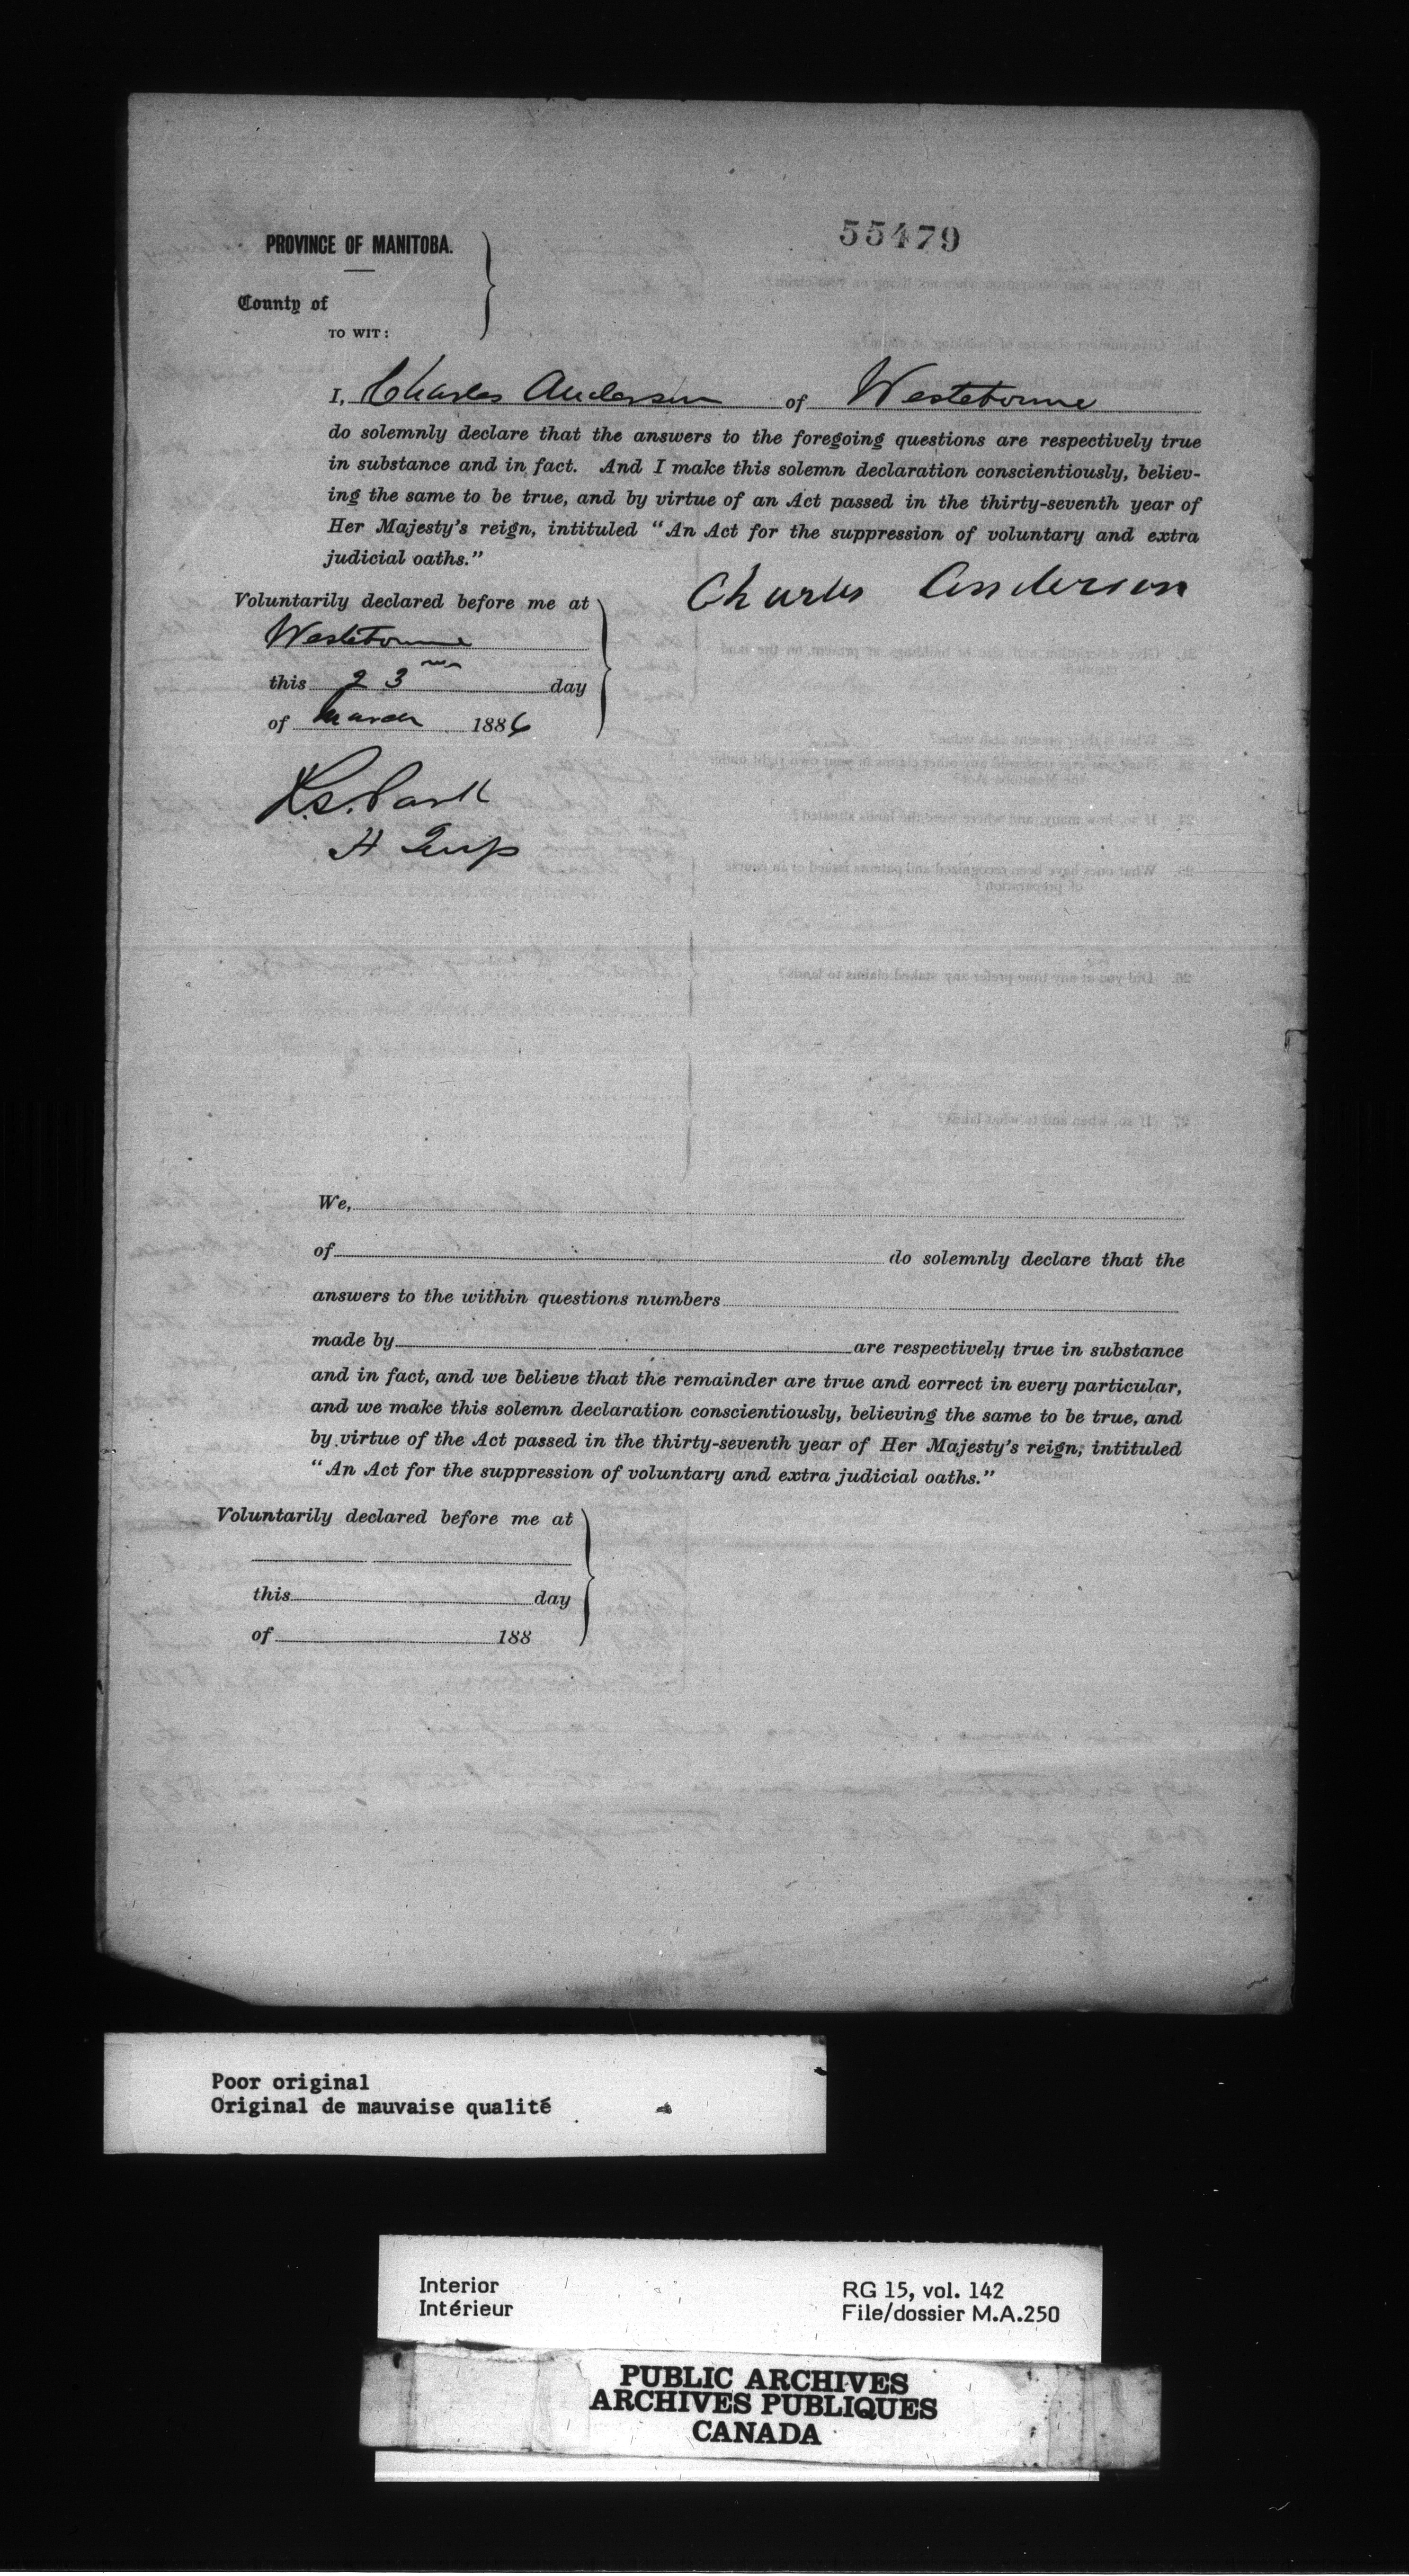 55479
PROVINCE OF MANITOBA.
County of
TO WIT:
I, Charles Anderson of Westbourne
do solemnly declare that the answers to the foregoing questions are respectively true
in substance and in fact. And I make this solemn declaration conscientiously, believ-
ing the same to be true, and by virtue of an Act passed in the thirty-seventh year of
Her Majesty's reign, intituled "An Act for the suppression of voluntary and extra
judicial oaths."
Charles Anderson
Voluntarily declared before me at
Westbourne
this 23 day
of March 1886
H Insp
We,
of do solemnly declare that the
answers to the within questions numbers
made by are respectively true in substance
and in fact, and we believe that the remainder are true and correct in every particular,
and we make this solemn declaration conscientiously, believing the same to be true, and
by virtue of the Act passed in the thirty-seventh year of Her Majesty's reign, intituled
"An Act for the suppression of voluntary and extra judicial oaths."
Voluntarily declared before me at
this day
of 188
Poor original
Original de mauvaise qualité
Interior
Intérieur
RG 15, vol. 142
File/dossier M.A.250
PUBLIC ARCHIVES
ARCHIVES PUBLIQUES
CANADA